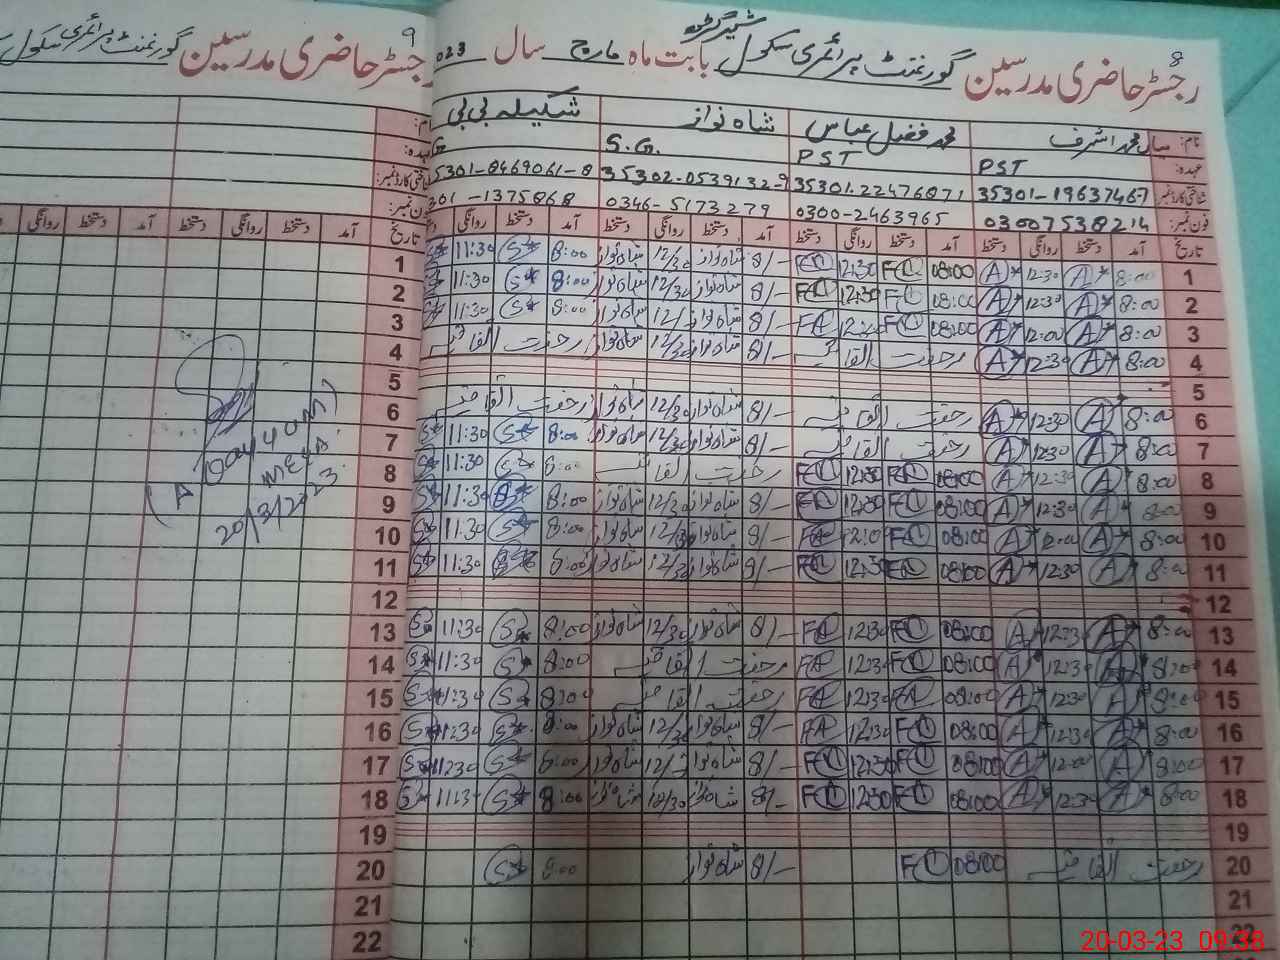 8
رجسٹر حاضری مدرسین گورنمنٹ پرائمری سکول شیر گڑھ بابت ماہ مارچ سال 023
نام: میاں محمد اشرف محمد فضیل عباس شاہ نواز شکیلہ بی بی
عہدہ: PST PST S.G.
شناختی کارڈ نمبر: 35301-19637467 35301-22476871 35302-0539132-9 35301-8469061-8
فون نمبر: 03007538214 0300-2463965 0346-5173279 301-1375868
تاریخ آمد دستخط روانگی دستخط آمد دستخط روانگی دستخط آمد دستخط روانگی دستخط آمد دستخط روانگی دستخط
1 8:00 A 12:30 A 08:00 12:30 8/- شاہ نواز شاہ نواز 8:00 11:30
2 8:00 A 12:30 A 08:00 12:30 8/- شاہ نواز 12/30 شاہ نواز 8:00 11:30
3 8:00 A 12:00 A 08:00 8/- شاہ نواز شاہ نواز 8:00 11:30
4 8:00 A 12:30 A رخصت اتفاقیہ 8/- شاہ نواز 12/30 شاہ نواز رخصت اتفاقیہ
5
6 8:00 A 12:30 A رخصت اتفاقیہ 8/- شاہ نواز 12/30 شاہ نواز رخصت اتفاقیہ
7 8:00 A 12:30 A رخصت اتفاقیہ 8/- شاہ نواز 12/30 شاہ نواز 8:00 11:30
8 8:00 A 12:30 A 08:00 12:30 رخصت اتفاقیہ 8:00 11:30
9 8:00 A 12:30 A 08:00 12:30 8/- شاہ نواز 12/30 شاہ نواز 8:00 11:30
10 8:00 A 12:00 A 08:00 8/- شاہ نواز 12/30 شاہ نواز 8:00 11:30
11 8:00 A 12:30 A 08:00 12:30 8/- شاہ نواز 12/30 شاہ نواز 8:00 11:30
12
13 8:00 A 12:30 A 08:00 12:30 8/- شاہ نواز 12/30 شاہ نواز 8:00 11:30
14 8:00 A 12:30 A 08:00 12:30 رخصت اتفاقیہ 8:00 11:30
15 8:00 A 12:30 A 08:00 12:30 رخصت اتفاقیہ 8:00 11:30
16 8:00 A 12:30 A 08:00 12:30 8/- شاہ نواز 12/30 شاہ نواز 8:00 11:30
17 8:00 A 12:00 A 08:00 12:30 8/- شاہ نواز شاہ نواز 8:00 11:30
18 8:00 A 12:30 A 08:00 12:30 8/- شاہ نواز 12/30 شاہ نواز 8:00 11:30
19
20 رخصت اتفاقیہ 08:00 8/- شاہ نواز 8:00
21
22
9
رجسٹر حاضری مدرسین گورنمنٹ پرائمری سکول
نام:
عہدہ:
شناختی کارڈ نمبر:
فون نمبر:
تاریخ آمد دستخط روانگی دستخط آمد دستخط روانگی
1
2
3
4
5
6
7
8
9
10
11
12
13
14
15
16
17
18
19
20
21
22
MEA
20/3/2023
20-03-23 09:38